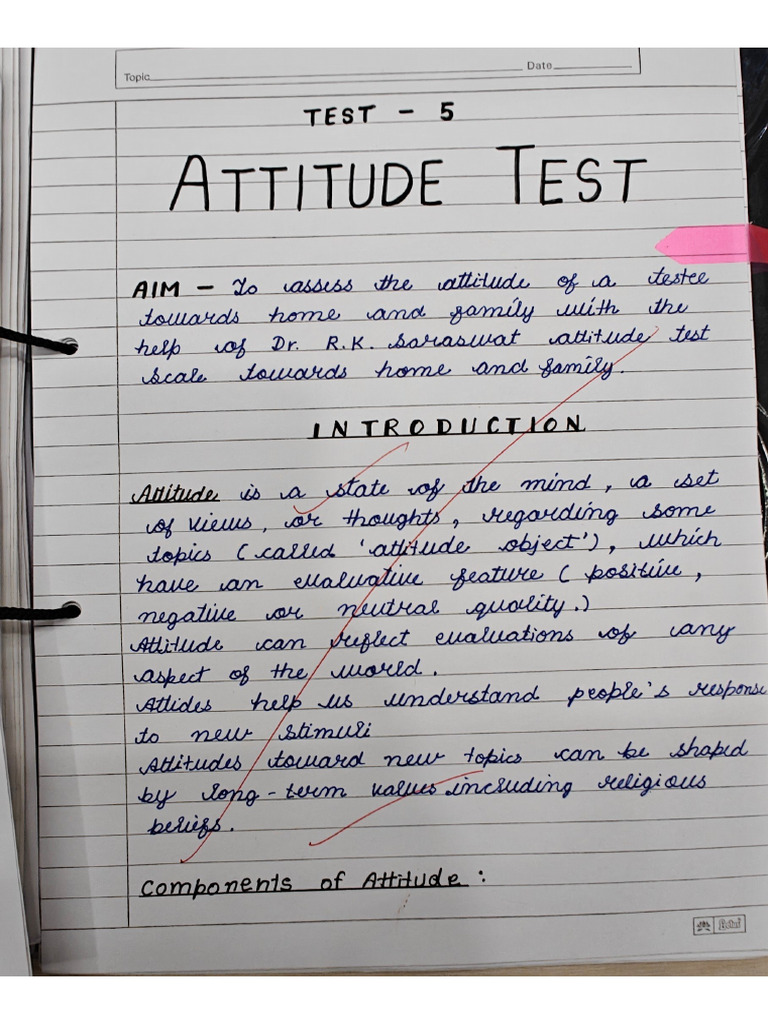 Topic
Date
TEST - 5
ATTITUDE TEST
AIM - To assess the attitude of a testee
towards home and family with the
help of Dr. R.K. Saraswat attitude test
scale towards home and family.
INTRODUCTION
Attitude is a state of the mind, a set
of views, or thoughts, regarding some
topics (called 'attitude object'), which
have an evaluative feature (positive,
negative or neutral quality.)
Attitude can reflect evaluations of any
aspect of the world.
Attides help us understand people's response
to new stimuli
Attitudes toward new topics can be shaped
by long-term values including religious
beliefs.
Components of Attitude :